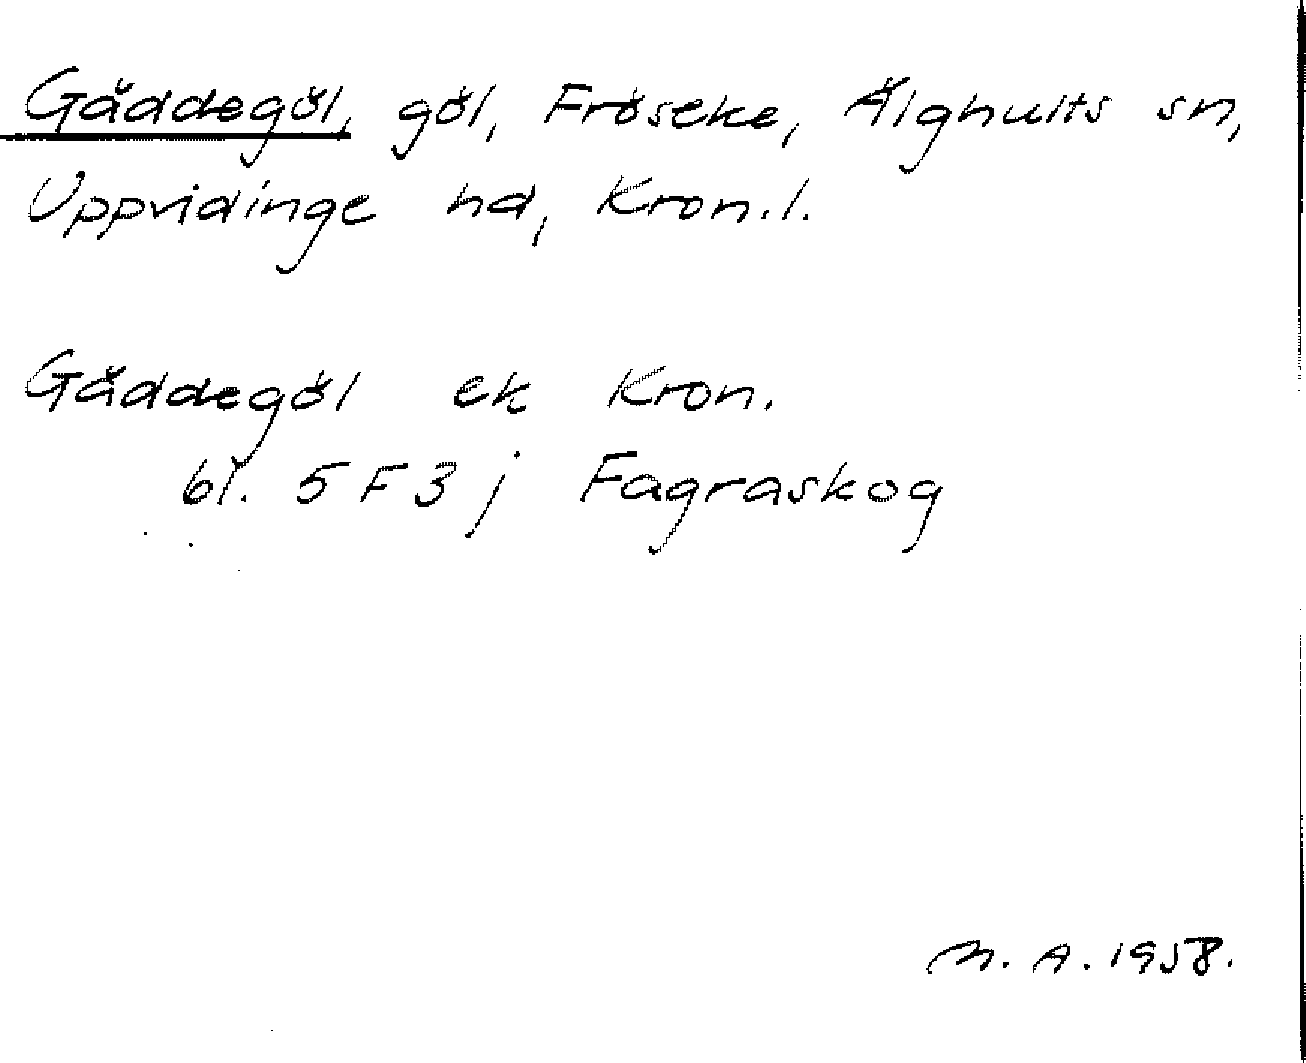 Gäddegöl, göl, Fröseke, Älghults sn,
Uppvidinge hd, Kron.l.
Gäddegöl ek Kron.
bl. 5 F 3 j Fagraskog
M. A. 1958.